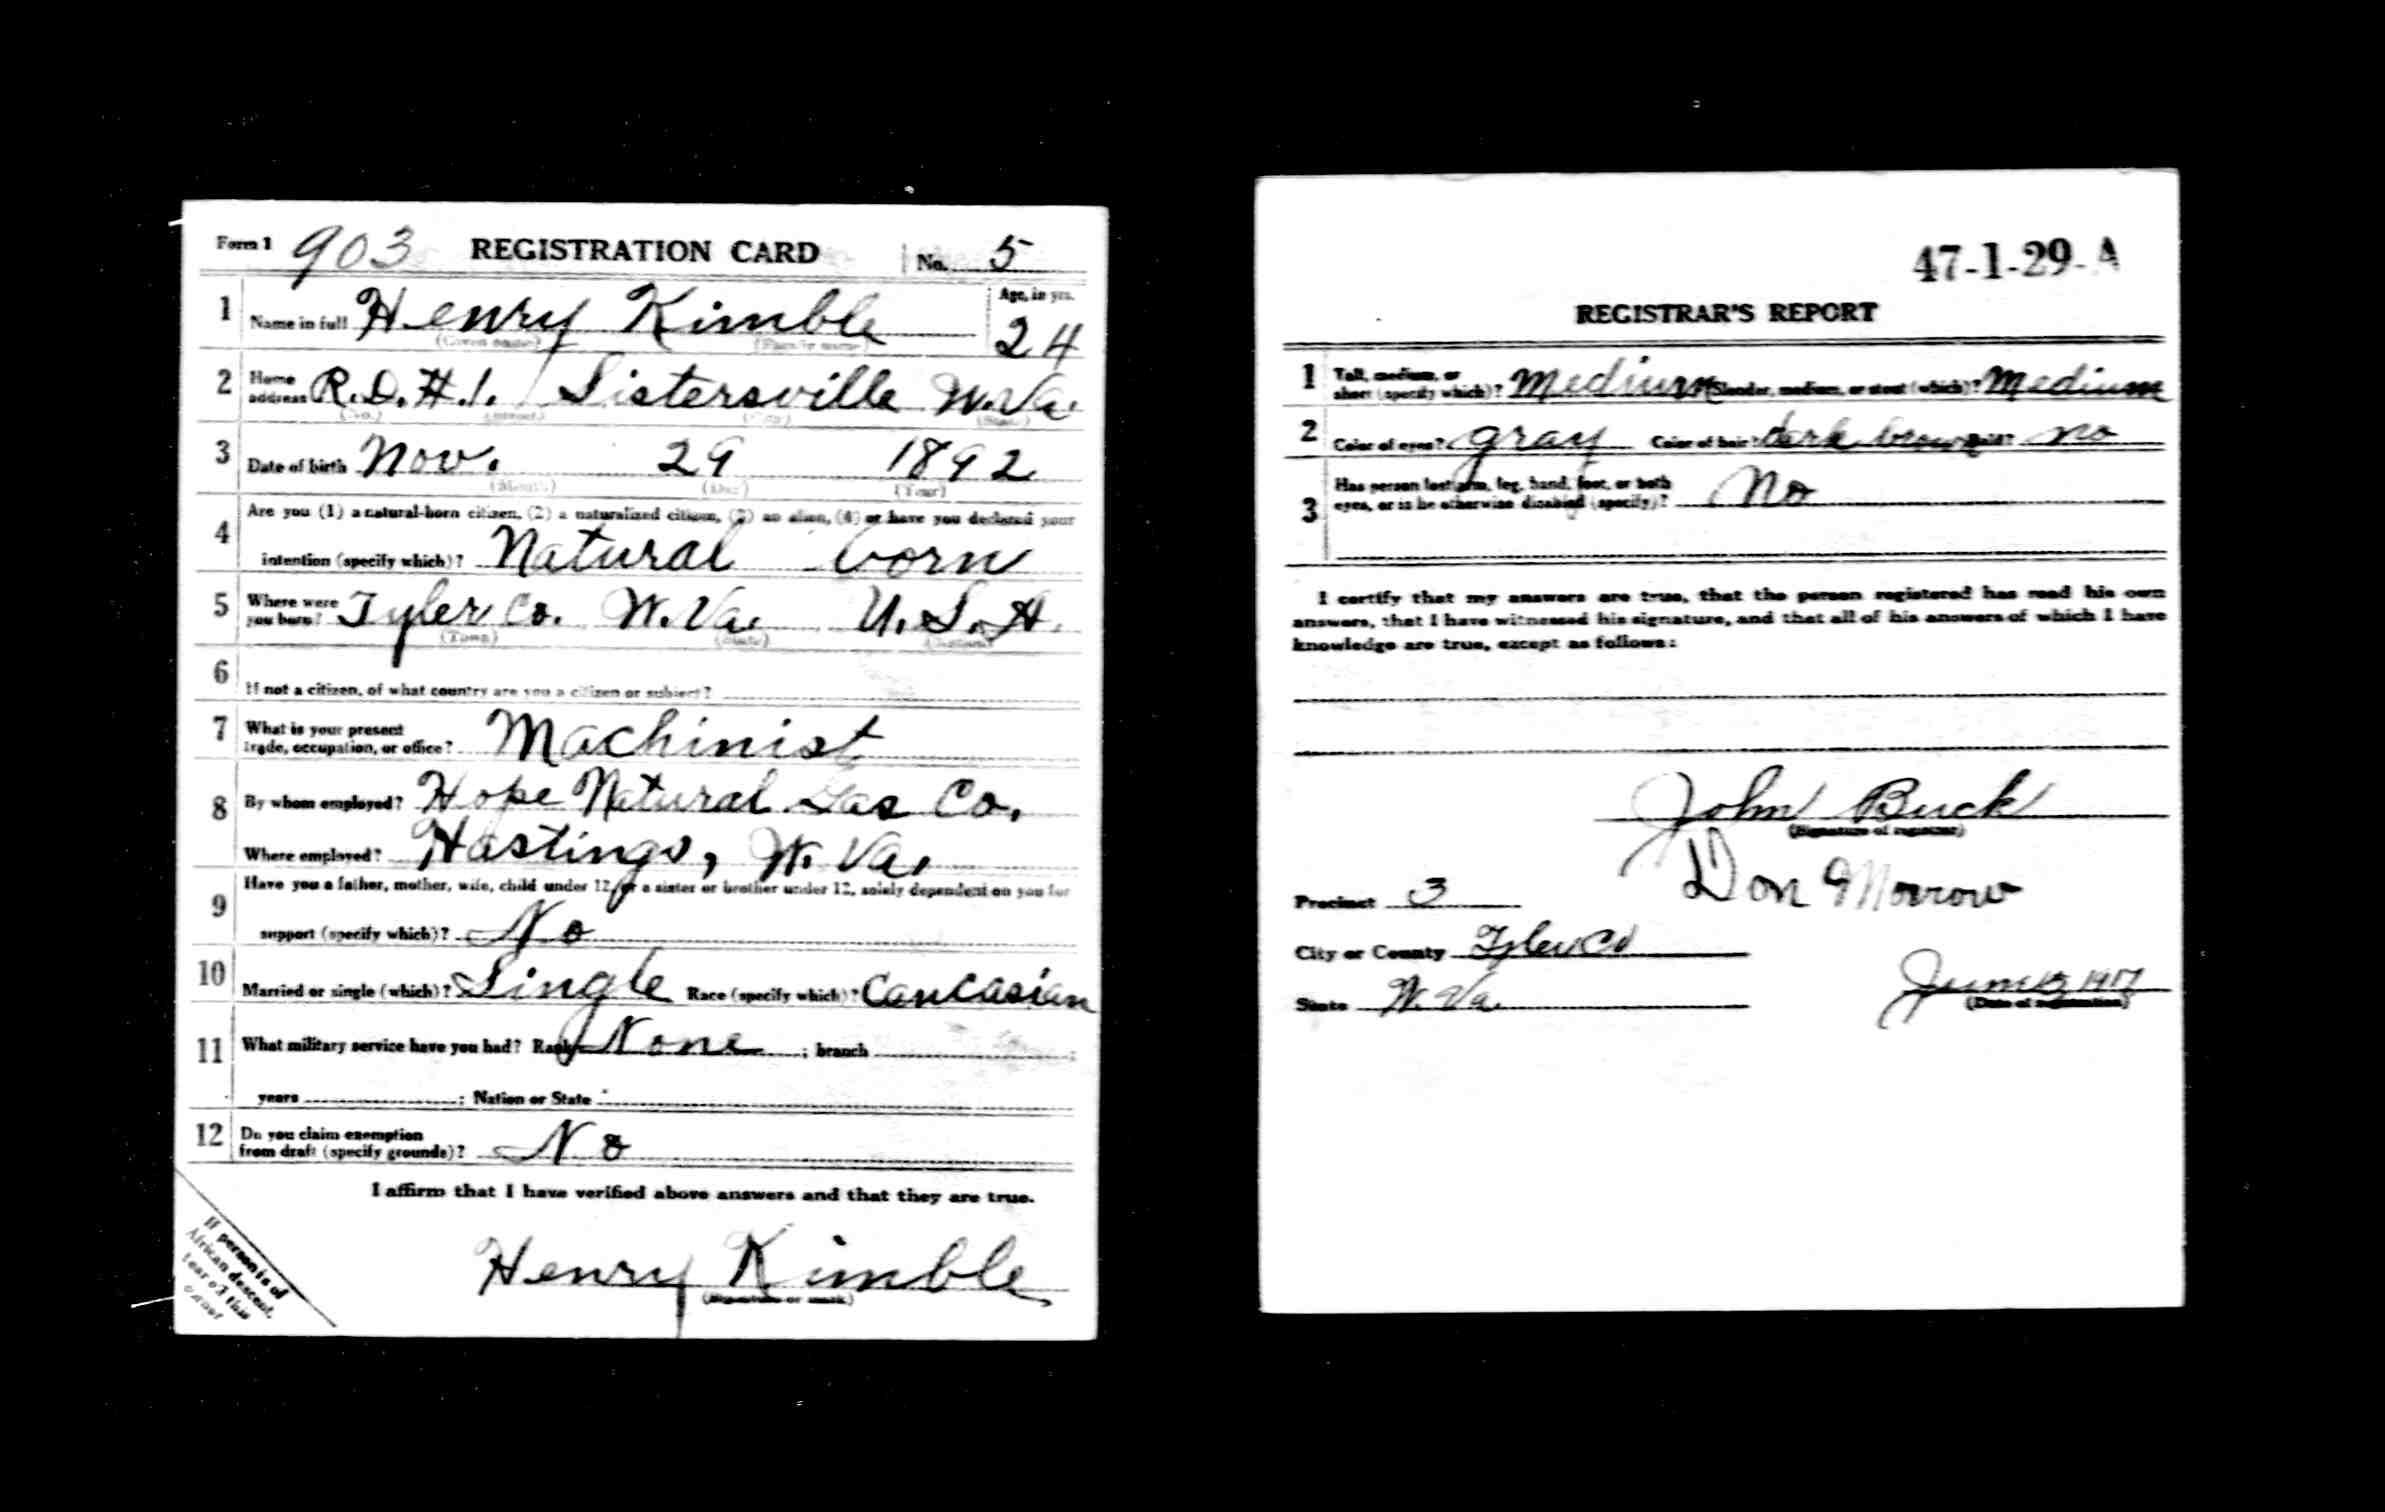 Form 1 903 REGISTRATION CARD No. 5
1 Name in full Henry Kimble Age, in yrs. 24
(Given name) (Family name)
2 Home address R.D.#.1. Sistersville W.Va.
(No.) (Street) (City) (State)
3 Date of birth Nov. 29 1892
(Month) (Day) (Year)
4 Are you (1) a natural-born citizen, (2) a naturalized citizen, (3) an alien, (4) or have you declared your
intention (specify which)? Natural born
5 Where were you born? Tyler Co. W.Va. U.S.A.
(Town) (State) (Nation)
6 If not a citizen, of what country are you a citizen or subject?
7 What is your present
trade, occupation, or office? Machinist
8 By whom employed? Hope Natural Gas Co.
Where employed? Hastings, W. Va.
9 Have you a father, mother, wife, child under 12, or a sister or brother under 12, solely dependent on you for
support (specify which)? No
10 Married or single (which)? Single Race (specify which)? Caucasian
11 What military service have you had? Rank None ; branch ;
years ; Nation or State
12 Do you claim exemption
from draft (specify grounds)? No
I affirm that I have verified above answers and that they are true.
Henry Kimble
(Signature or mark)
If person is of
African descent,
tear off this
corner
47-1-29-A
REGISTRAR'S REPORT
1 Tall, medium, or
short (specify which)? Medium Slender, medium, or stout (which)? Medium
2 Color of eyes? gray Color of hair? dark brown Bald? no
3 Has person lost arm, leg, hand, foot, or both
eyes, or is he otherwise disabled (specify)? No
I certify that my answers are true, that the person registered has read his own
answers, that I have witnessed his signature, and that all of his answers of which I have
knowledge are true, except as follows:
John Buck
(Signature of registrar)
Don Morrow
Precinct 3
City or County Tyler Co
State W. Va.
June 1917
(Date of registration)